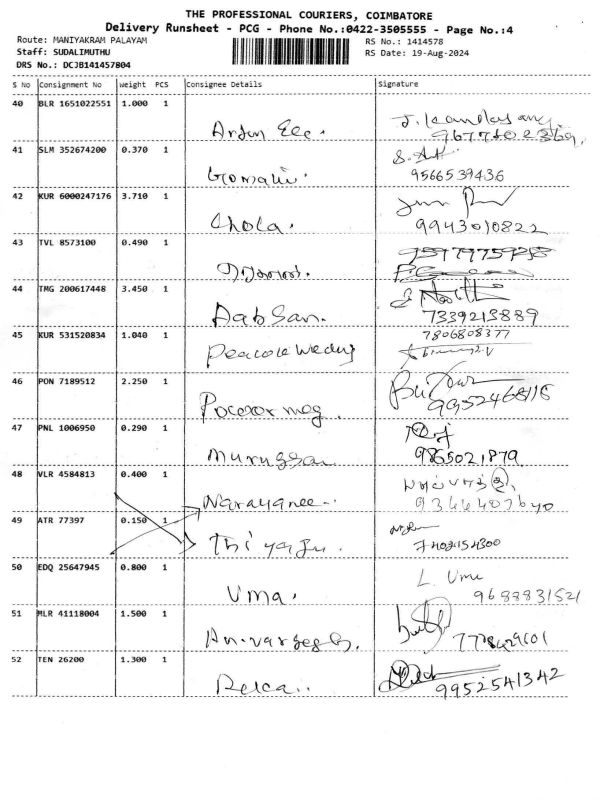 THE PROFESSIONAL COURIERS, COIMBATORE
Delivery Runsheet - PCG - Phone No.:0422-3505555 - Page No.:4
Route: MANIYAKRAM PALAYAM
RS No.: 1414578
Staff: SUDALIMUTHU
RS Date: 19-Aug-2024
DRS No.: DCJB141457804
S No Consignment No Weight PCS Consignee Details Signature
40 BLR 1651022551 1.000 1
Arjun Elc.
41 SLM 352674200 0.370 1
Gomathi. 9566539436
42 KUR 6000247176 3.710 1
Chola. 9943010822
43 TVL 8573100 0.490 1
44 TMG 200617448 3.450 1
Aabsan. 7339213889
45 KUR 531520834 1.040 1 7806808377
Peacock
46 PON 7189512 2.250 1
9952468118
47 PNL 1006950 0.290 1
Murugesan 9865021879
48 VLR 4584813 0.400 1
Narayanee
49 ATR 77397 0.150 1
Thiyagu.
50 EDQ 25647945 0.800 1
L. Uma
Uma. 9688831521
51 MLR 41118004 1.500 1
52 TEN 26200 1.300 1
9952541342